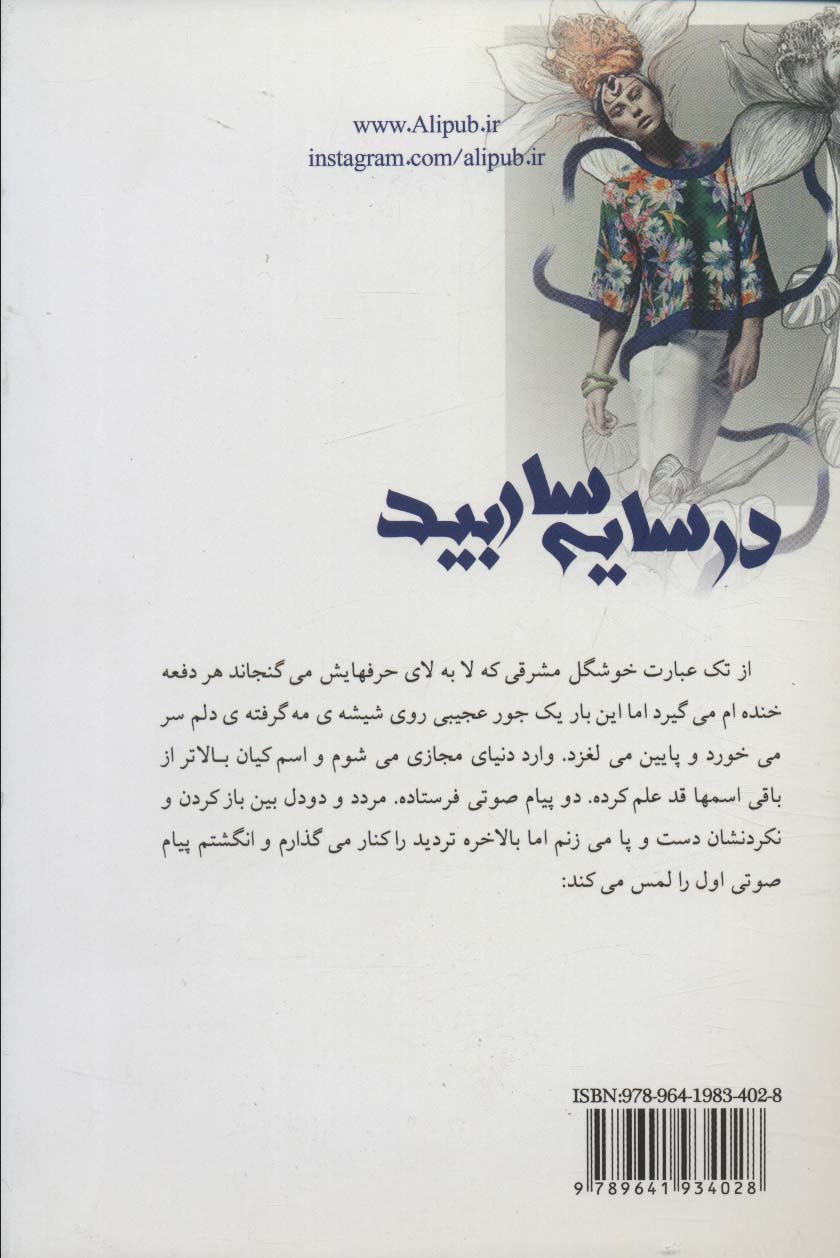 www.Alipub.ir
instagram.com/alipub.ir
در سایه ساربید
از تک عبارت خوشگل مشرقی که لا به لای حرفهایش می گنجاند هر دفعه
خنده ام می گیرد اما این بار یک جور عجیبی روی شیشه ی مه گرفته ی دلم سر
می خورد و پایین می لغزد. وارد دنیای مجازی می شوم و اسم کیان بالاتر از
باقی اسمها قد علم کرده. دو پیام صوتی فرستاده. مردد و دودل بین باز کردن و
نکردنشان دست و پا می زنم اما بالاخره تردید را کنار می گذارم و انگشتم پیام
صوتی اول را لمس می کند:
ISBN:978-964-1983-402-8
9 789641 934028